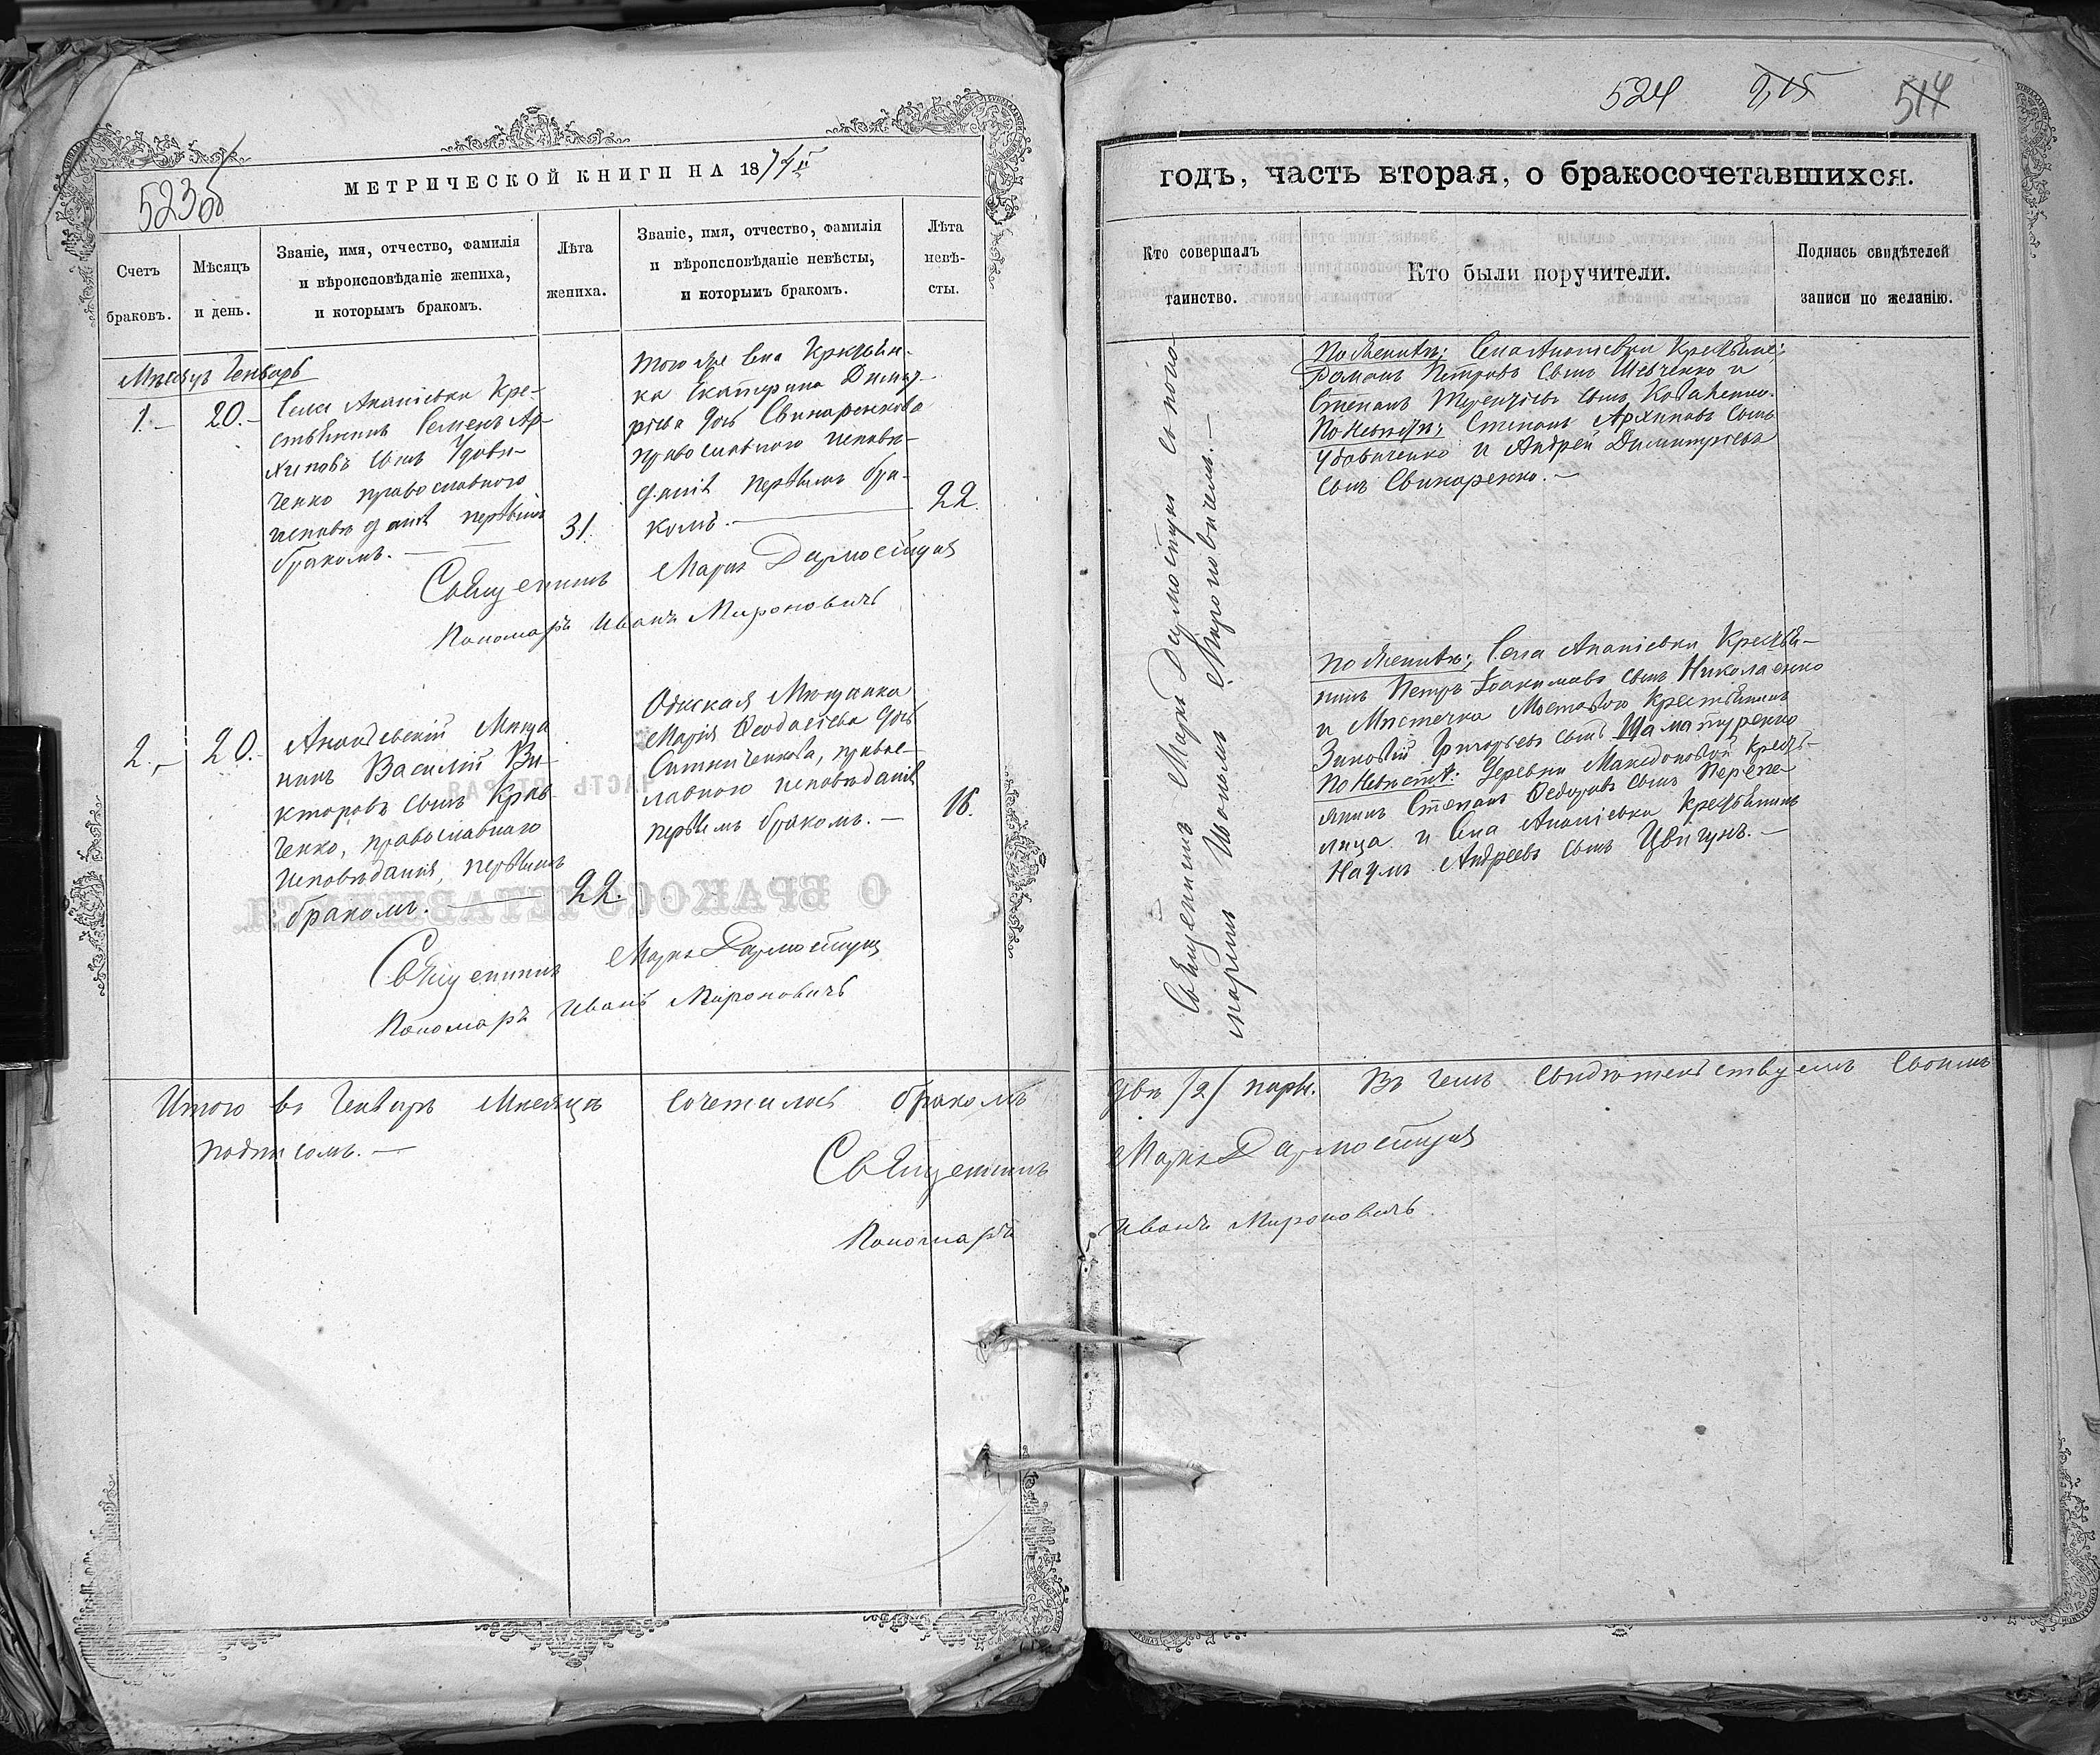 523об
МЕТРИЧЕСКОЙ КНИГИ НА 18
Счетъ
браковъ.
Мѣсяцъ
и день.
Званіе, имя, отчество, фамилія
и вѣроисповѣданіе жениха,
и которымъ бракомъ.
Лѣта
жениха.
Званіе, имя, отчество, фамилія
и вѣроисповѣданіе невѣсты,
и которымъ бракомъ.
Лѣта
невѣ-
сты.
Мѣсяцъ Генварь
1.- 20.-
Села Ананіевки Кре-
стьянинъ Семенъ Ар-
хиповъ сынъ Удови-
ченко православного
исповѣданія первымъ
бракомъ. —
31.
того же села Крестьян-
ка Екатерина Димит-
ріева дочь Свинаренкова
православного исповѣ-
данія первымъ бра-
комъ. —
22.
Священникъ Маркъ Дармостукъ
Пономарь Иванъ Мироновичъ
2.- 20.-
Ананьевскій Мѣща
нинъ Василій Ви-
кторовъ сынъ Крав-
ченко, православнаго
исповѣданія, первымъ
бракомъ. —
22.
Одеская Мѣщанка
Марія Феодосіева дочь
Ситниченкова, правос-
лавного исповѣданія
первымъ бракомъ. —
16.
Священникъ Маркъ Дармостукъ
Пономарь Иванъ Мироновичъ
Итого въ Генварѣ Мѣсяцѣ сочеталось бракомъ
подписомъ. —
Священникъ
Пономарь
524 215 514
годъ, часть вторая, о бракосочетавшихся.
Кто совершалъ
таинство.
Кто были поручители.
Подпись свидѣтелей
записи по желанію.
Священникъ Маркъ Дармостукъ съ поно-
маремъ Иваномъ Мироновичемъ. —
По женихѣ: Села Ананіевки Крестьяне:
Романъ Петровъ сынъ Шевченко и
Степанъ Терентіевъ сынъ
По невѣстѣ: Степанъ Архиповъ сынъ
Удовиченко и Андрей Димитріевъ
сынъ Свинаренко. —
По женихѣ: Села Ананіевки Крестья-
нинъ Петръ Іоакимовъ сынъ Николаенко
и Мѣстечка Мостового Крестьянинъ
Зиновій Григорьевъ сынъ Шаматуренко
По невѣстѣ: Деревни Македоновой Кресть-
янинъ Степанъ Федоровъ сынъ Перепе-
лица и Села Ананіевки Крестьянинъ
Наумъ Андреевъ сынъ Цвигунъ. —
двѣ /2/ пары. Въ чемъ свидѣтельствуемъ своимъ
Маркъ Дармостукъ
Иванъ Мироновичъ